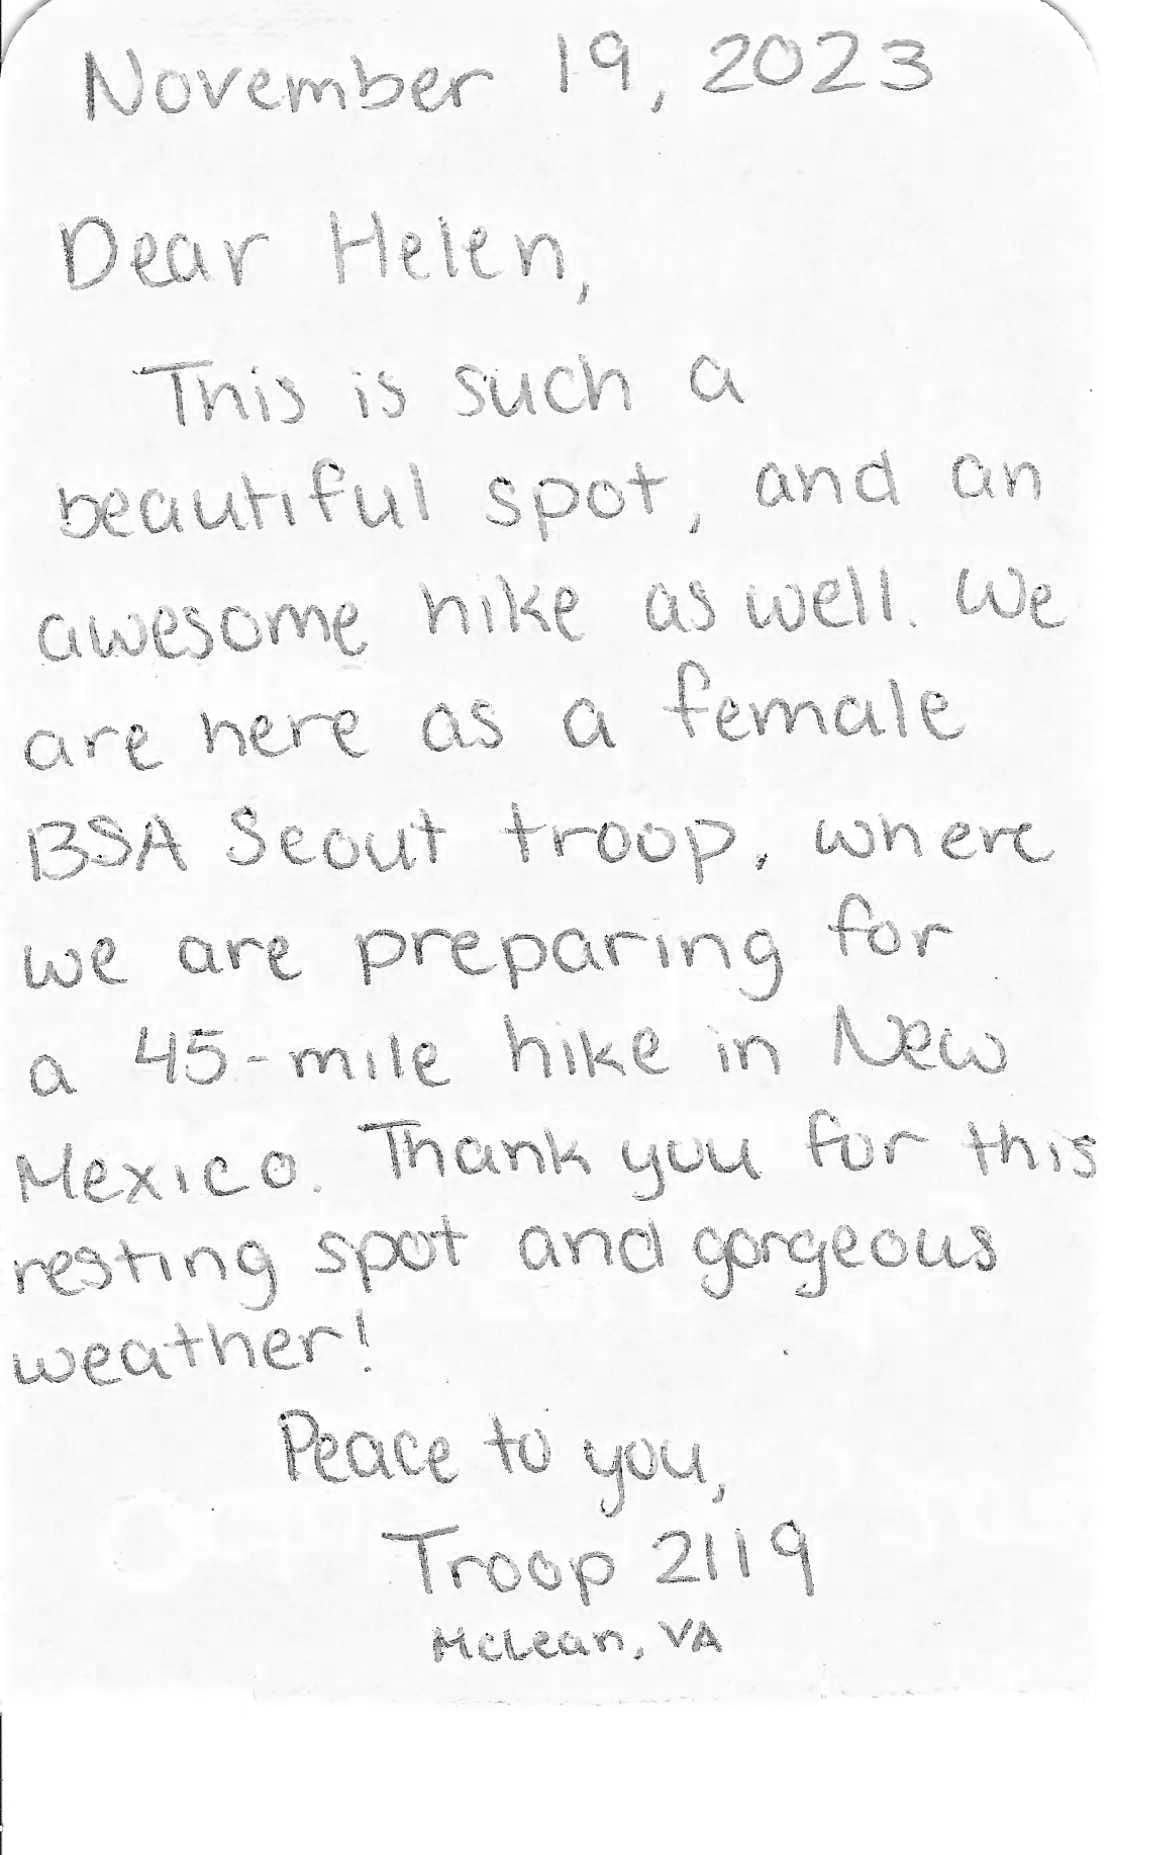 November 19, 2023
Dear Helen,
This is such a
beautiful spot, and an
awesome hike as well. We
are here as a female
BSA Scout troop, where
we are preparing for
a 45-mile hike in New
Mexico. Thank you for this
resting spot and gorgeous
weather!
Peace to you,
Troop 2119
McLean, VA